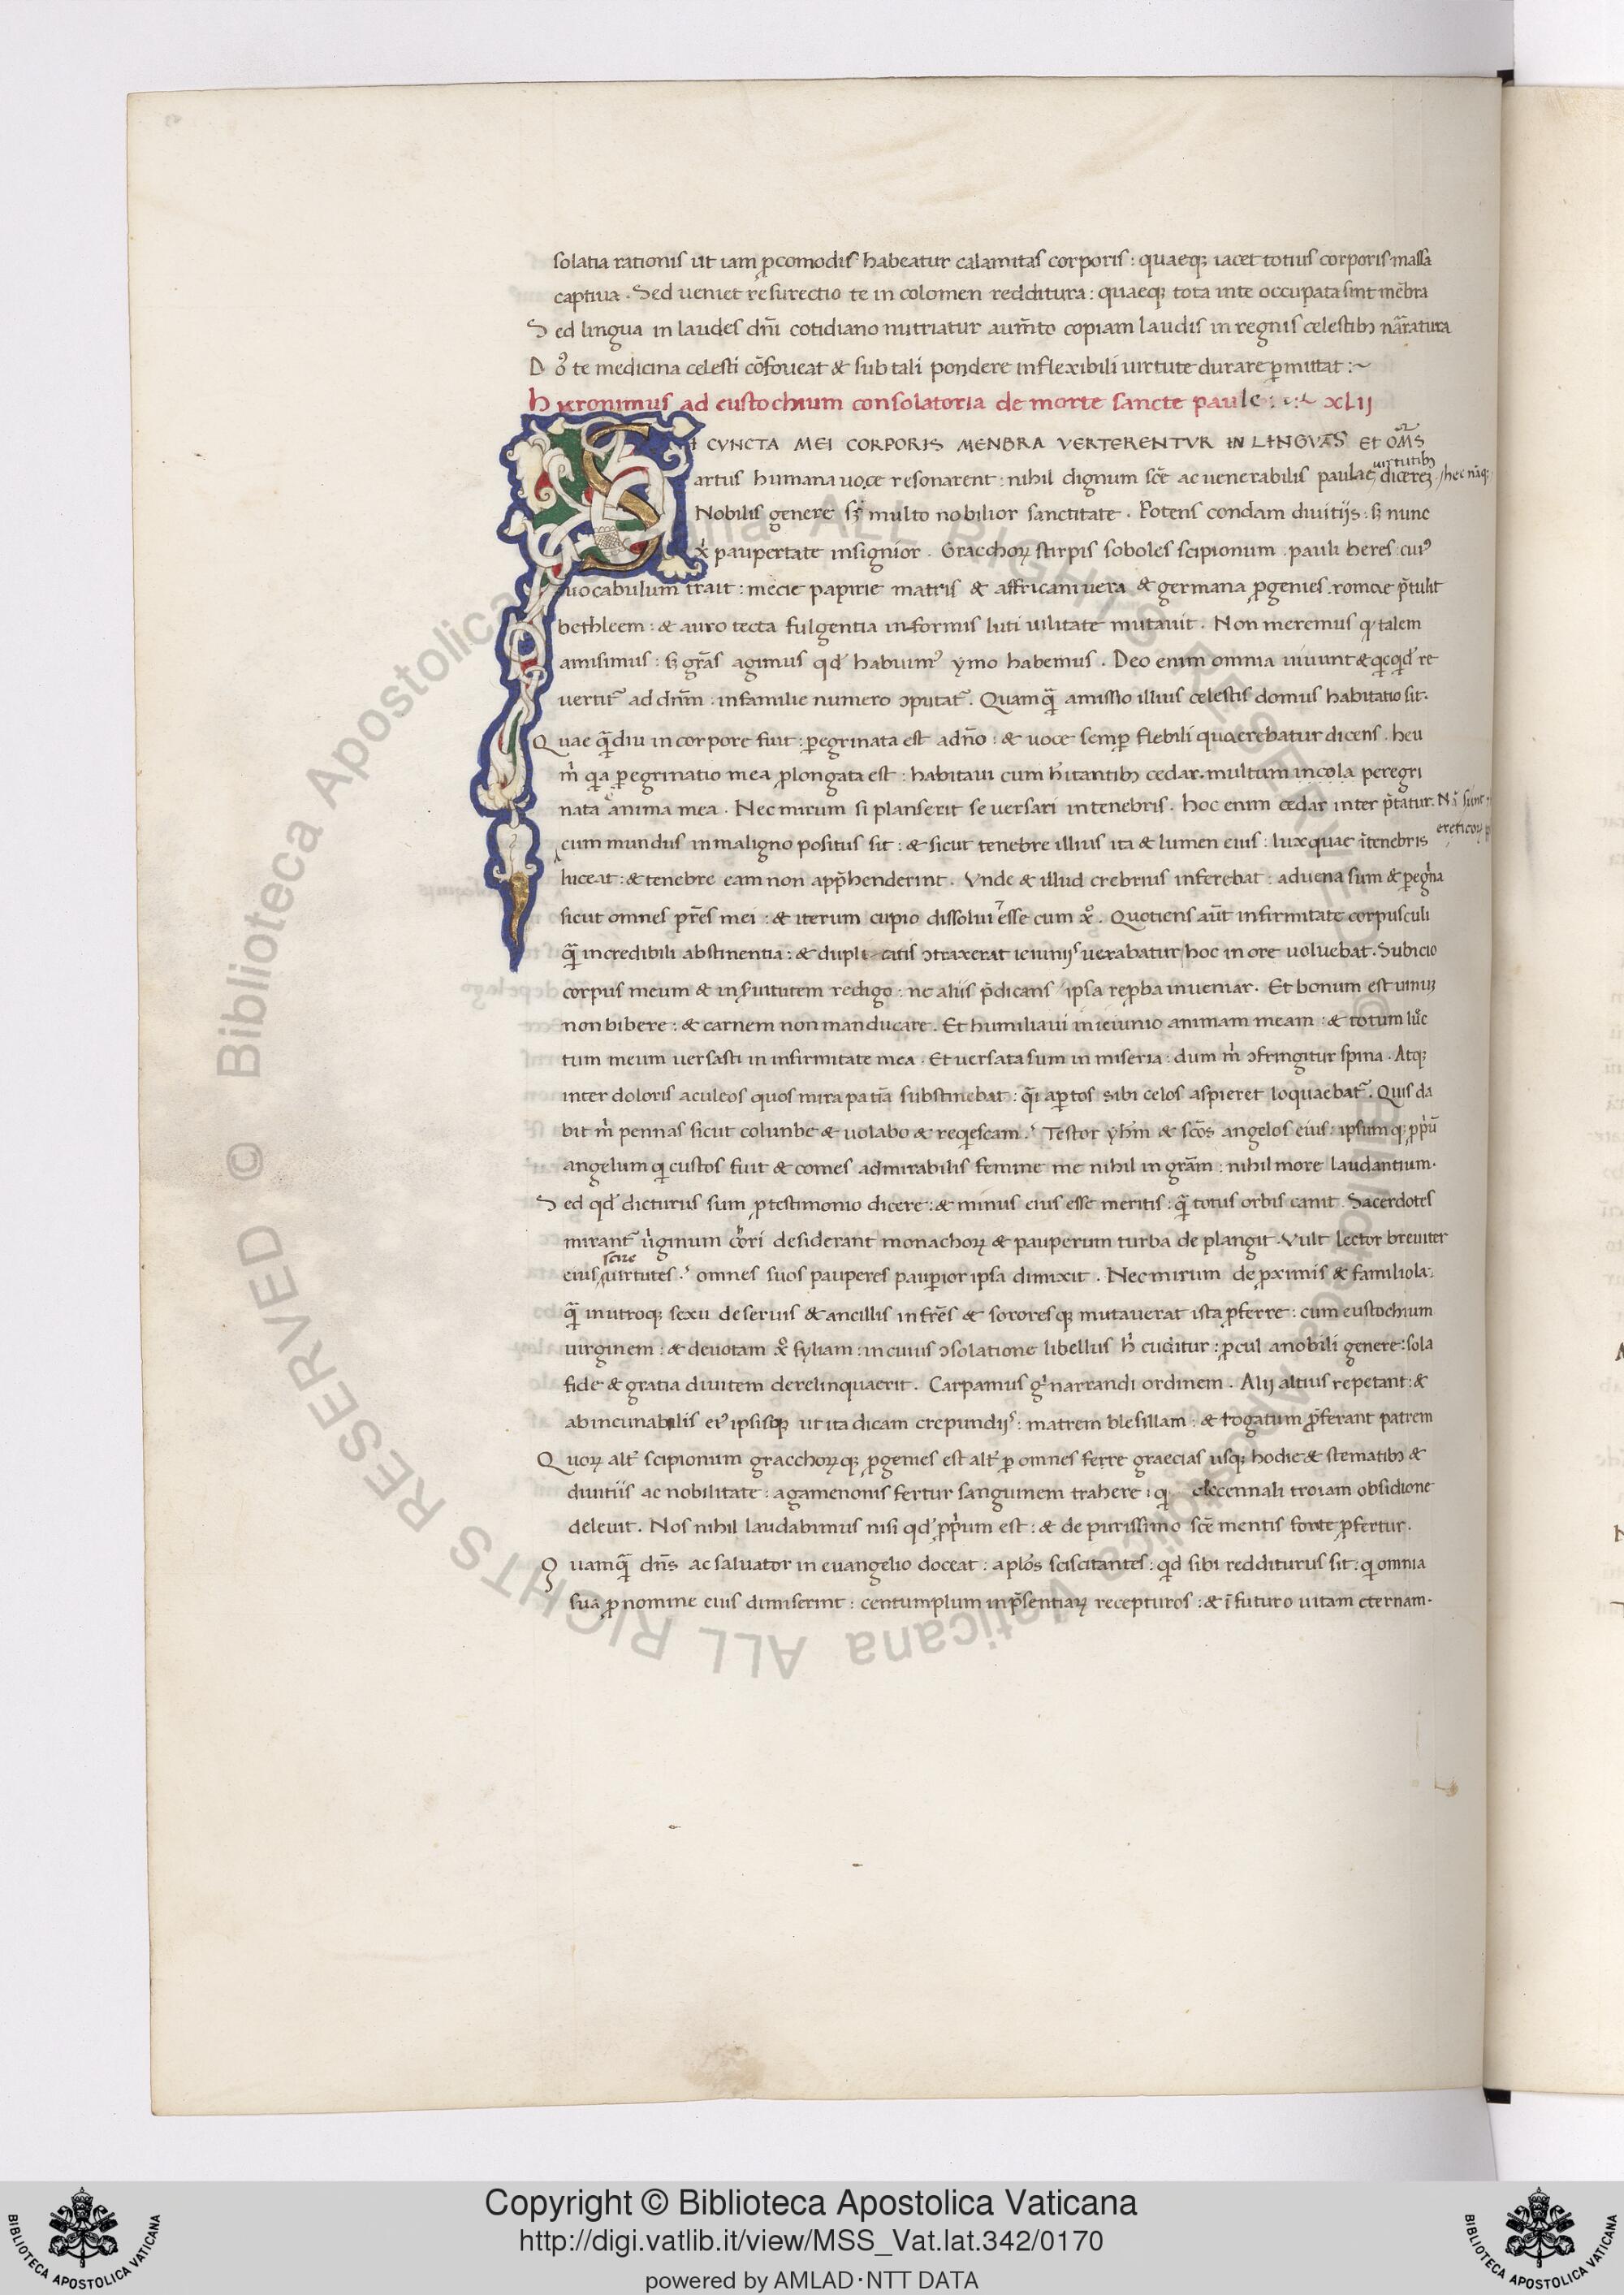 solatia rationis ut iam ꝓcomodis habeatur calamitas corporis : quaeqꝫ iacet totius corporis massa
captiua . Sed ueniet resurectio te in colomen redditura : quaeqꝫ tota inte occupata sint mēbra
Sed lingua in laudes dn̄i cotidiano nutriatur aum̄to copiam laudis in regnis celestibꝫ nār̄atura
Dꝰ te medicina celesti cōfoueat & sub tali pondere inflexibili uirtute durare ꝑmittat :~
hieronimus ad eustochium consolatoria de morte sancte paule : ·:~ xLij
SI CVNCTA MEI CORPORIS MENBRA VERTERENTVR IN LINGVAS ET OM̄S
artus humana uoce resonarent : nihil dignum scē ac uenerabilis paulae uirtutibꝫ dicereꝫ . / hec nāqꝫ
Nobilis genere sꝫ multo nobilior sanctitate . Potens condam diuitijs : sꝫ nunc
xp̄i paupertate insignior . Gracchoꝝ stirpis soboles scipionum . pauli heres : cuiꝰ
uocabulum trait : mecie papirie matris & affricani uera & germana ꝓgenies . romae p̄tulit
bethleem : & auro tecta fulgentia informis luti uilitate mutauit . Non meremus qꝫ talem
amisimus : sꝫ grās agimus qd' habuimꝰ ymo habemus . Deo enim omnia uiuunt & qͥcqͥd' re
uertit̄ ad dn̄m : infamilie numero ꝯputat̄ . Quamqͣ̄ amissio illius celestis domus habitatio sit .
Quae qͣ̄diu in corpore fuit : ꝑegrinata est adn̄o : & uoce semꝑ flebili quaerebatur dicens . heu
m̄ qͥa ꝑegrinatio mea ꝓlongata est : habitaui cum h̄itantibꝫ cedar . multum incola peregri
nata ē anima mea . Nec mirum si planserit se uersari intenebris . hoc enim cedar inter p̄tatur . Nā sunt
ereticoꝝ
cum mundus inmaligno positus sit : & sicut tenebre illius ita & lumen eius : lux quae ītenebris
luceat : & tenebre eam non app̄henderint . Vnde & illud crebrius inferebat : aduena sum & ꝑegͥna
sicut omnes pr̄es mei : & iterum cupio dissolui esse cum xͦ . Quotiens aūt infirmitate corpusculi
qͣ̄ incredibili abstinentia : & duplicatis ꝯtraxerat ieiunijs uexabatur hoc in ore uoluebat . Subicio
corpus meum & inſuitutem redigo : ne aliis p̄dicans ipsa reꝓba inueniar . Et bonum est uinuꝫ
non bibere : & carnem non manducare . Et humiliaui inieiunio animam meam : & totum luc̄
tum meum uersasti in infirmitate mea . Et uersata sum in miseria : dum m̄ ꝯfringitur spina . Atqꝫ
inter doloris aculeos quos mira patīa substinebat : qͣ̄i aꝑtos sibi celos aspieret loquaebat̄ . Quis da
bit m̄ pennas sicut colunbe & uolabo & reqͥescam . Testor yh̄m & scōs angelos eius : ipsumqꝫ ꝓpͥū
angelum qͥ custos fuit & comes admirabilis femine me nihil in grām : nihil more laudantium .
Sed qd' dicturus sum ꝓ testimonio dicere : & minus eius esse meritis : qͣ̄ totus orbis canit . Sacerdotes
mirant̄ uͥginum cōri desiderant monachoꝝ & pauperum turba de plangit . Vult lector breuiter
eius scire uirtutes . omnes suos pauperes pauꝑior ipsa dimixit . Nec mirum de ꝓximis & familiola .
qͣ̄ inutroqꝫ sexu de seruis & ancillis in fr̄es & sororesqꝫ mutauerat ista ꝓferre : cum eustochium
uirginem : & deuotam xͦ fyliam : in cuius ꝯsolatione libellus hͥ cuditur : ꝓcul anobili genere : sola
fide & gratia diuitem derelinquaerit . Carpamus gͥ narrandi ordinem . Alij altius repetant : &
abincunabulis eiꝰ ipsisqꝫ ut ita dicam crepundijs : matrem blesillam : & rogatum ꝓferant patrem
Quoꝝ alt̄ scipionum gracchoꝝqꝫ ꝓgenies est alt̄ ꝑ omnes ferre graecias usqꝫ hodie & stematibꝫ &
diuitiis ac nobilitate : agamenonis fertur sanguinem trahere : qͥ decennali troiam obsidione
deleuit . Nos nihil laudabimus nisi qd' ꝓpͥum est : & de purissimo scē mentis fonte ꝓfertur .
Quamqͣ̄ dn̄s ac saluator in euangelio doceat : aplōs sciscitantes : qͥd sibi redditurus sit : qͥ omnia
sua ꝓ nomine eius dimiserint : centumplum inp̄sentiaꝝ recepturos : & ī futuro uitam eternam .
Copyright © Biblioteca Apostolica Vaticana
http://digi.vatlib.it/view/MSS_Vat.lat.342/0170
powered by AMLAD·NTT DATA
BIBLIOTECA APOSTOLICA VATICANA
BIBLIOTECA APOSTOLICA VATICANA
© Biblioteca Apostolica Vaticana ALL RIGHTS RESERVED